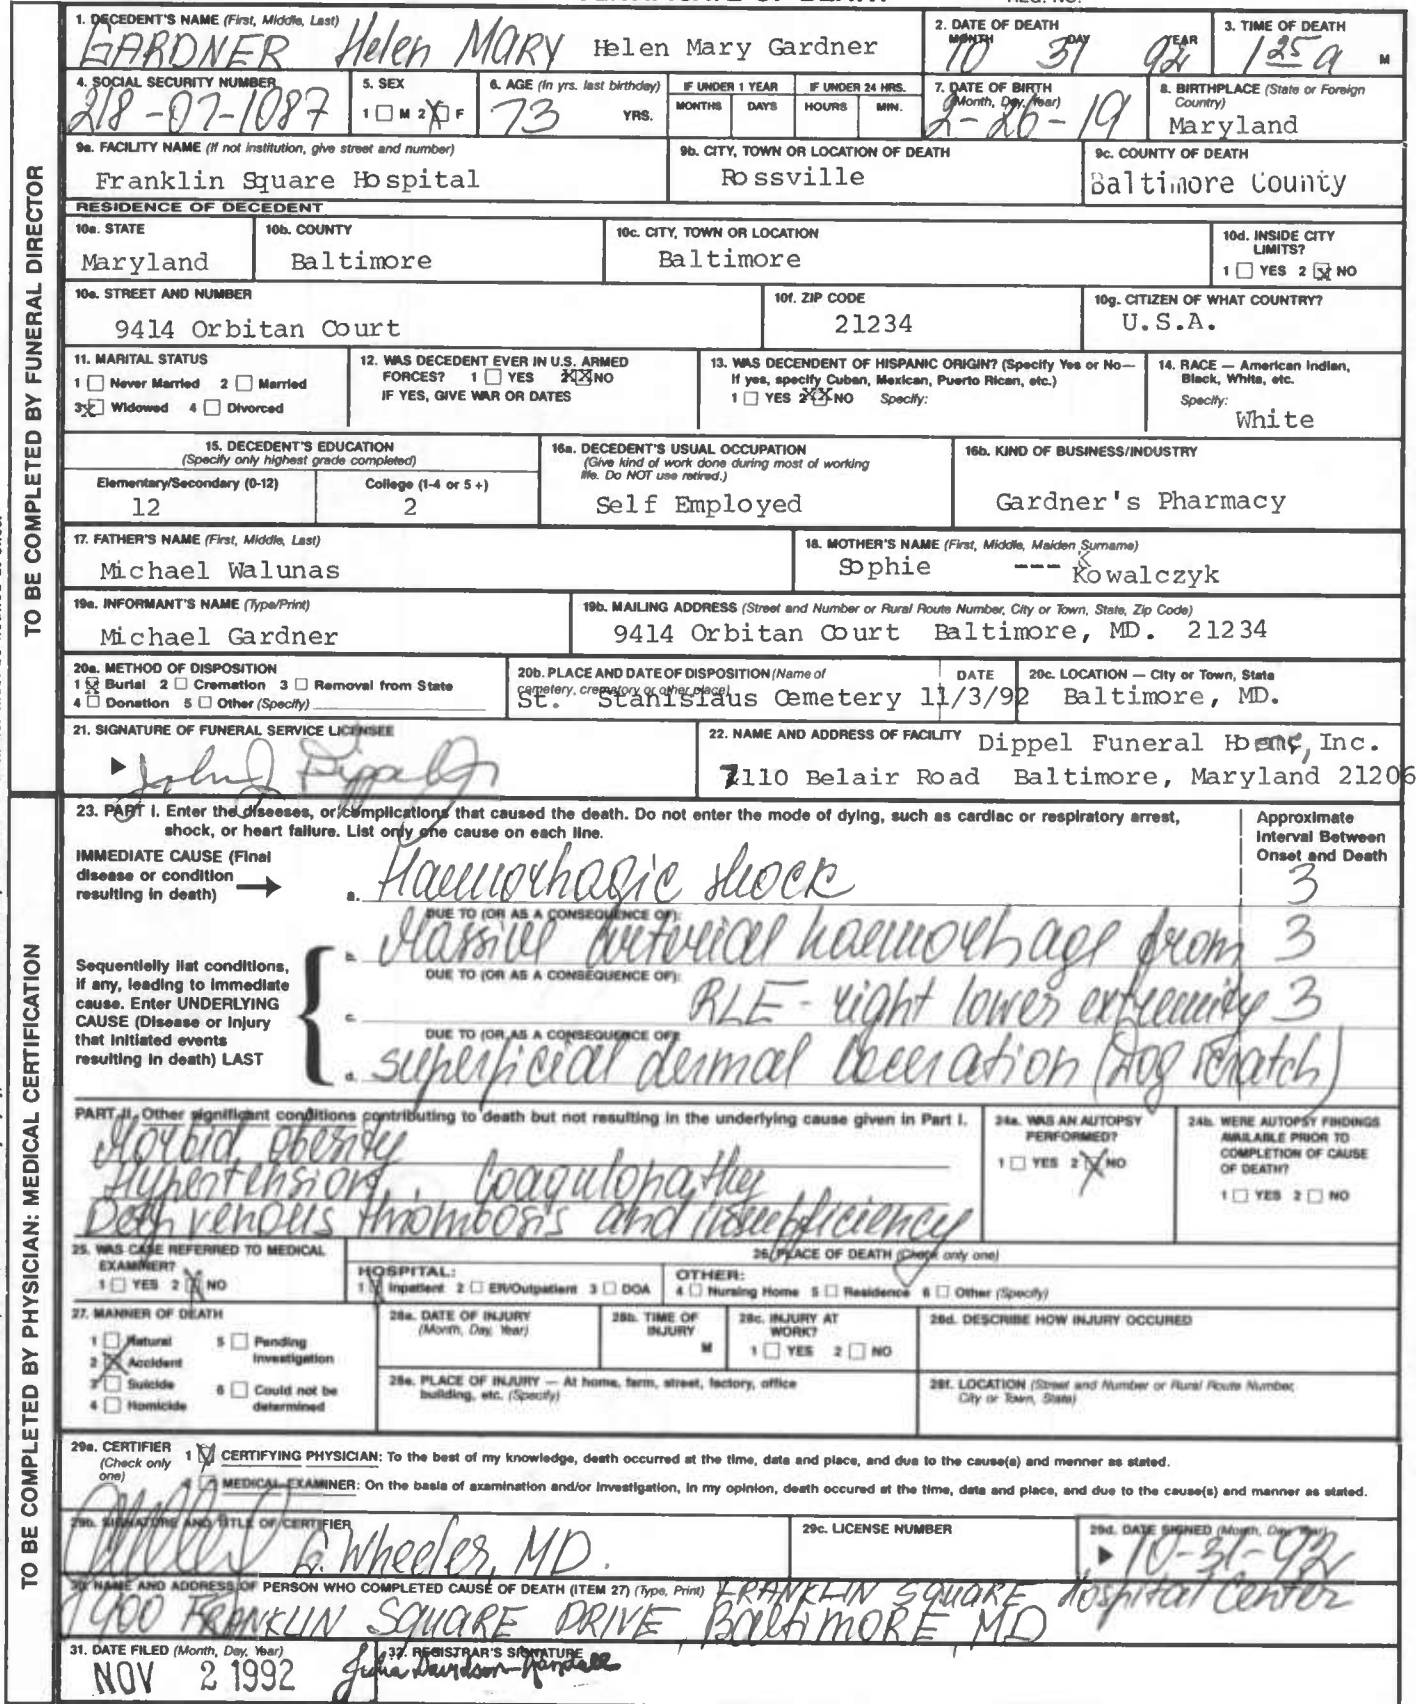 1. DECEDENT'S NAME (First, Middle, Last)
GARDNER Helen MARY Helen Mary Gardner
2. DATE OF DEATH
MONTH DAY YEAR
10 31 92
3. TIME OF DEATH
1 25 a M
4. SOCIAL SECURITY NUMBER
218-07-1087
5. SEX
1 M 2 X F
6. AGE (In yrs. last birthday)
73 YRS.
IF UNDER 1 YEAR
MONTHS DAYS
IF UNDER 24 HRS.
HOURS MIN.
7. DATE OF BIRTH
(Month, Day, Year)
2-26-19
8. BIRTHPLACE (State or Foreign
Country)
Maryland
9a. FACILITY NAME (If not institution, give street and number)
Franklin Square Hospital
9b. CITY, TOWN OR LOCATION OF DEATH
Rossville
9c. COUNTY OF DEATH
Baltimore County
RESIDENCE OF DECEDENT
10a. STATE
Maryland
10b. COUNTY
Baltimore
10c. CITY, TOWN OR LOCATION
Baltimore
10d. INSIDE CITY
LIMITS?
1 YES 2 X NO
10e. STREET AND NUMBER
9414 Orbitan Court
10f. ZIP CODE
21234
10g. CITIZEN OF WHAT COUNTRY?
U.S.A.
11. MARITAL STATUS
1 Never Married 2 Married
3 X Widowed 4 Divorced
12. WAS DECEDENT EVER IN U.S. ARMED
FORCES? 1 YES XX NO
IF YES, GIVE WAR OR DATES
13. WAS DECENDENT OF HISPANIC ORIGIN? (Specify Yes or No—
If yes, specify Cuban, Mexican, Puerto Rican, etc.)
1 YES 2 XX NO Specify:
14. RACE — American Indian,
Black, White, etc.
Specify:
White
15. DECEDENT'S EDUCATION
(Specify only highest grade completed)
Elementary/Secondary (0-12) College (1-4 or 5+)
12 2
16a. DECEDENT'S USUAL OCCUPATION
(Give kind of work done during most of working
life. Do NOT use retired.)
Self Employed
16b. KIND OF BUSINESS/INDUSTRY
Gardner's Pharmacy
17. FATHER'S NAME (First, Middle, Last)
Michael Walunas
18. MOTHER'S NAME (First, Middle, Maiden Surname)
Sophie --- Kowalczyk
19a. INFORMANT'S NAME (Type/Print)
Michael Gardner
19b. MAILING ADDRESS (Street and Number or Rural Route Number, City or Town, State, Zip Code)
9414 Orbitan Court Baltimore, MD. 21234
20a. METHOD OF DISPOSITION
1 X Burial 2 Cremation 3 Removal from State
4 Donation 5 Other (Specify)
20b. PLACE AND DATE OF DISPOSITION (Name of
cemetery, crematory or other place) DATE
St. Stanislaus Cemetery 11/3/92
20c. LOCATION — City or Town, State
Baltimore, MD.
21. SIGNATURE OF FUNERAL SERVICE LICENSEE
John J Dippel Jr
22. NAME AND ADDRESS OF FACILITY Dippel Funeral Home, Inc.
7110 Belair Road Baltimore, Maryland 21206
TO BE COMPLETED BY FUNERAL DIRECTOR
23. PART I. Enter the diseases, or complications that caused the death. Do not enter the mode of dying, such as cardiac or respiratory arrest,
shock, or heart failure. List only one cause on each line.
Approximate
Interval Between
Onset and Death
IMMEDIATE CAUSE (Final
disease or condition
resulting in death)
a. Haemorhagic shock 3
DUE TO (OR AS A CONSEQUENCE OF):
b. Massive arterial haemorhage from 3
DUE TO (OR AS A CONSEQUENCE OF):
c. RLE - right lower extremity 3
DUE TO (OR AS A CONSEQUENCE OF):
d. superficial dermal laceration (Dog scratch)
Sequentially list conditions,
if any, leading to immediate
cause. Enter UNDERLYING
CAUSE (Disease or injury
that initiated events
resulting in death) LAST
PART II. Other significant conditions contributing to death but not resulting in the underlying cause given in Part I.
Morbid obesity
Hypertension, Coagulopathy
Deth venous thrombosis and insufficiency
24a. WAS AN AUTOPSY
PERFORMED?
1 YES 2 X NO
24b. WERE AUTOPSY FINDINGS
AVAILABLE PRIOR TO
COMPLETION OF CAUSE
OF DEATH?
1 YES 2 NO
25. WAS CASE REFERRED TO MEDICAL
EXAMINER?
1 YES 2 X NO
26. PLACE OF DEATH (Check only one)
HOSPITAL:
1 Inpatient 2 ER/Outpatient 3 DOA
OTHER:
4 Nursing Home 5 Residence 6 Other (Specify)
27. MANNER OF DEATH
1 Natural 5 Pending
Investigation
2 X Accident
3 Suicide 6 Could not be
determined
4 Homicide
28a. DATE OF INJURY
(Month, Day, Year)
28b. TIME OF
INJURY
M
28c. INJURY AT
WORK?
1 YES 2 NO
28d. DESCRIBE HOW INJURY OCCURED
28e. PLACE OF INJURY — At home, farm, street, factory, office
building, etc. (Specify)
28f. LOCATION (Street and Number or Rural Route Number,
City or Town, State)
29a. CERTIFIER
(Check only
one)
1 CERTIFYING PHYSICIAN: To the best of my knowledge, death occurred at the time, date and place, and due to the cause(s) and manner as stated.
2 MEDICAL EXAMINER: On the basis of examination and/or investigation, in my opinion, death occured at the time, date and place, and due to the cause(s) and manner as stated.
29b. SIGNATURE AND TITLE OF CERTIFIER
G. Wheeler, MD.
29c. LICENSE NUMBER
29d. DATE SIGNED (Month, Day, Year)
10-31-92
30. NAME AND ADDRESS OF PERSON WHO COMPLETED CAUSE OF DEATH (ITEM 27) (Type, Print) FRANKLIN SQUARE Hospital Center
9000 FRANKLIN SQUARE DRIVE, BALTIMORE, MD
31. DATE FILED (Month, Day, Year)
NOV 2 1992
32. REGISTRAR'S SIGNATURE
Julia Davidson-Randall
TO BE COMPLETED BY PHYSICIAN: MEDICAL CERTIFICATION